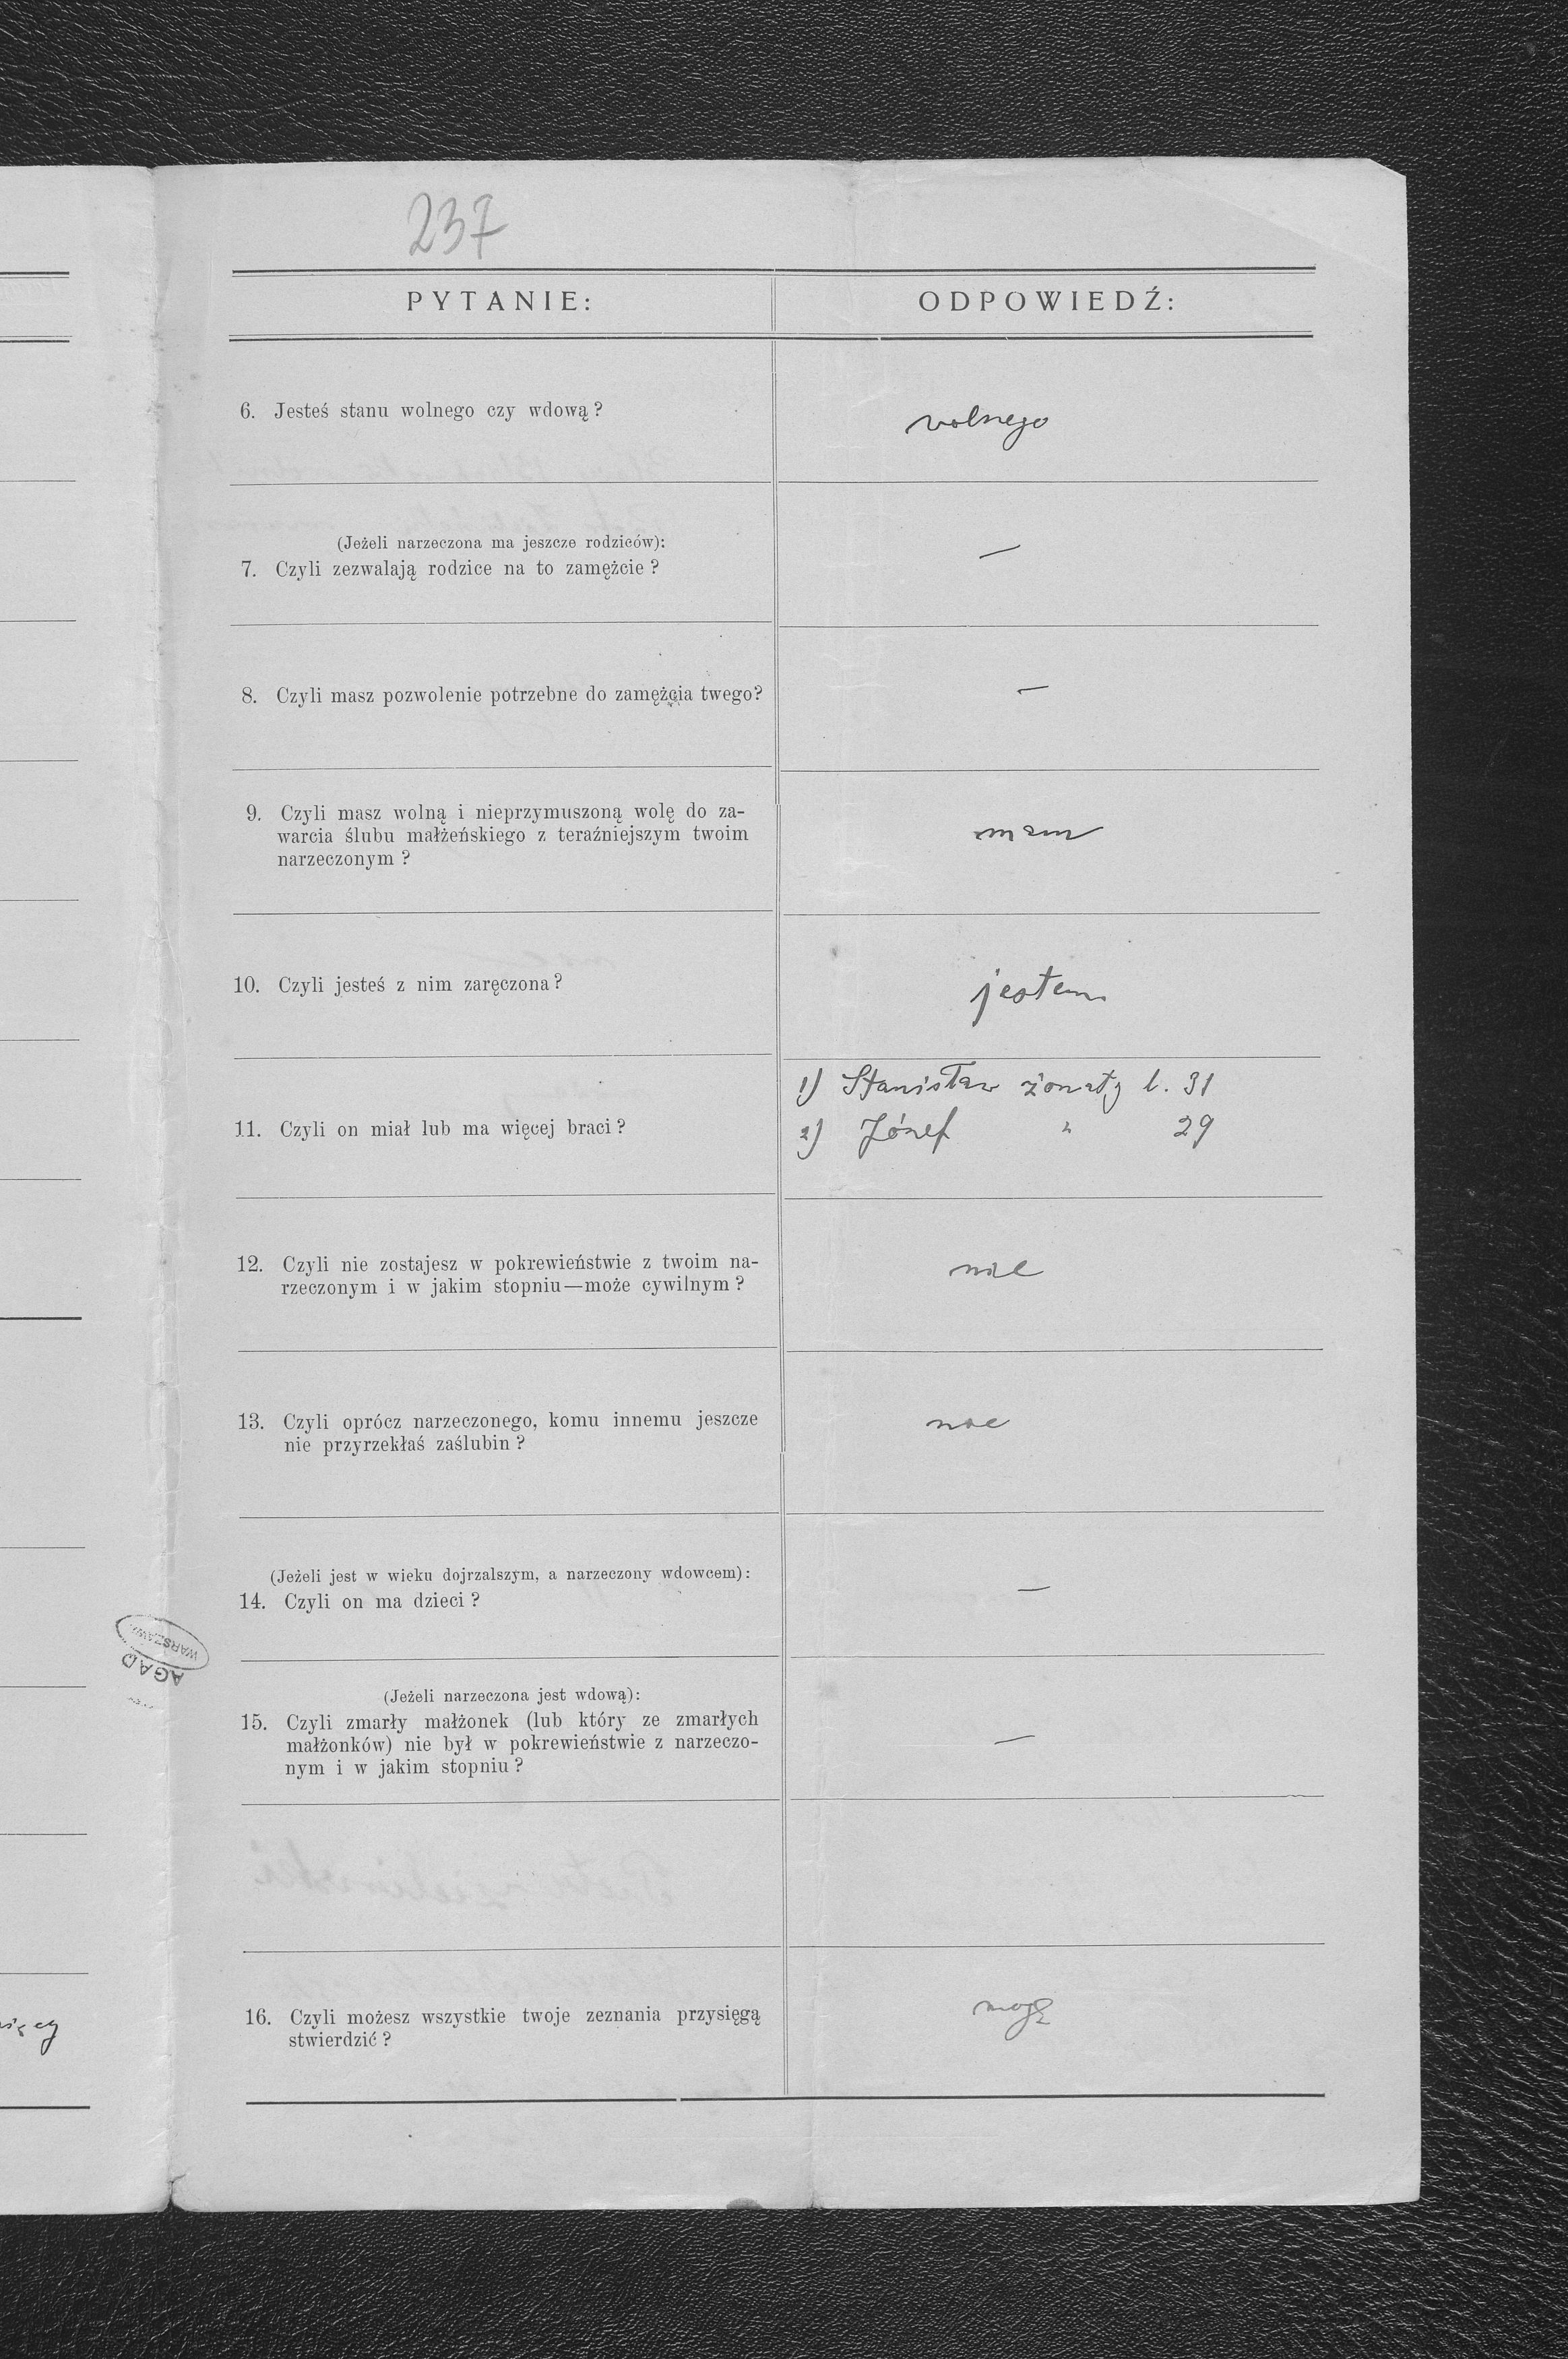 237
PYTANIE: ODPOWIEDŹ:
6. Jesteś stanu wolnego czy wdową? wolnego
(Jeżeli narzeczona ma jeszcze rodziców):
7. Czyli zezwalają rodzice na to zamężcie? —
8. Czyli masz pozwolenie potrzebne do zamężcia twego? —
9. Czyli masz wolną i nieprzymuszoną wolę do za-
warcia ślubu małżeńskiego z teraźniejszym twoim mam
narzeczonym?
10. Czyli jesteś z nim zaręczona? jestem
1) Stanisław żonaty l. 31
11. Czyli on miał lub ma więcej braci? 2) Józef " 29
12. Czyli nie zostajesz w pokrewieństwie z twoim na- nie
rzeczonym i w jakim stopniu—może cywilnym?
13. Czyli oprócz narzeczonego, komu innemu jeszcze nie
nie przyrzekłaś zaślubin?
(Jeżeli jest w wieku dojrzalszym, a narzeczony wdowcem):
14. Czyli on ma dzieci? —
(Jeżeli narzeczona jest wdową):
15. Czyli zmarły małżonek (lub który ze zmarłych
małżonków) nie był w pokrewieństwie z narzeczo- —
nym i w jakim stopniu?
16. Czyli możesz wszystkie twoje zeznania przysięgą mogę
stwierdzić?
AGAD
WARSZAWA